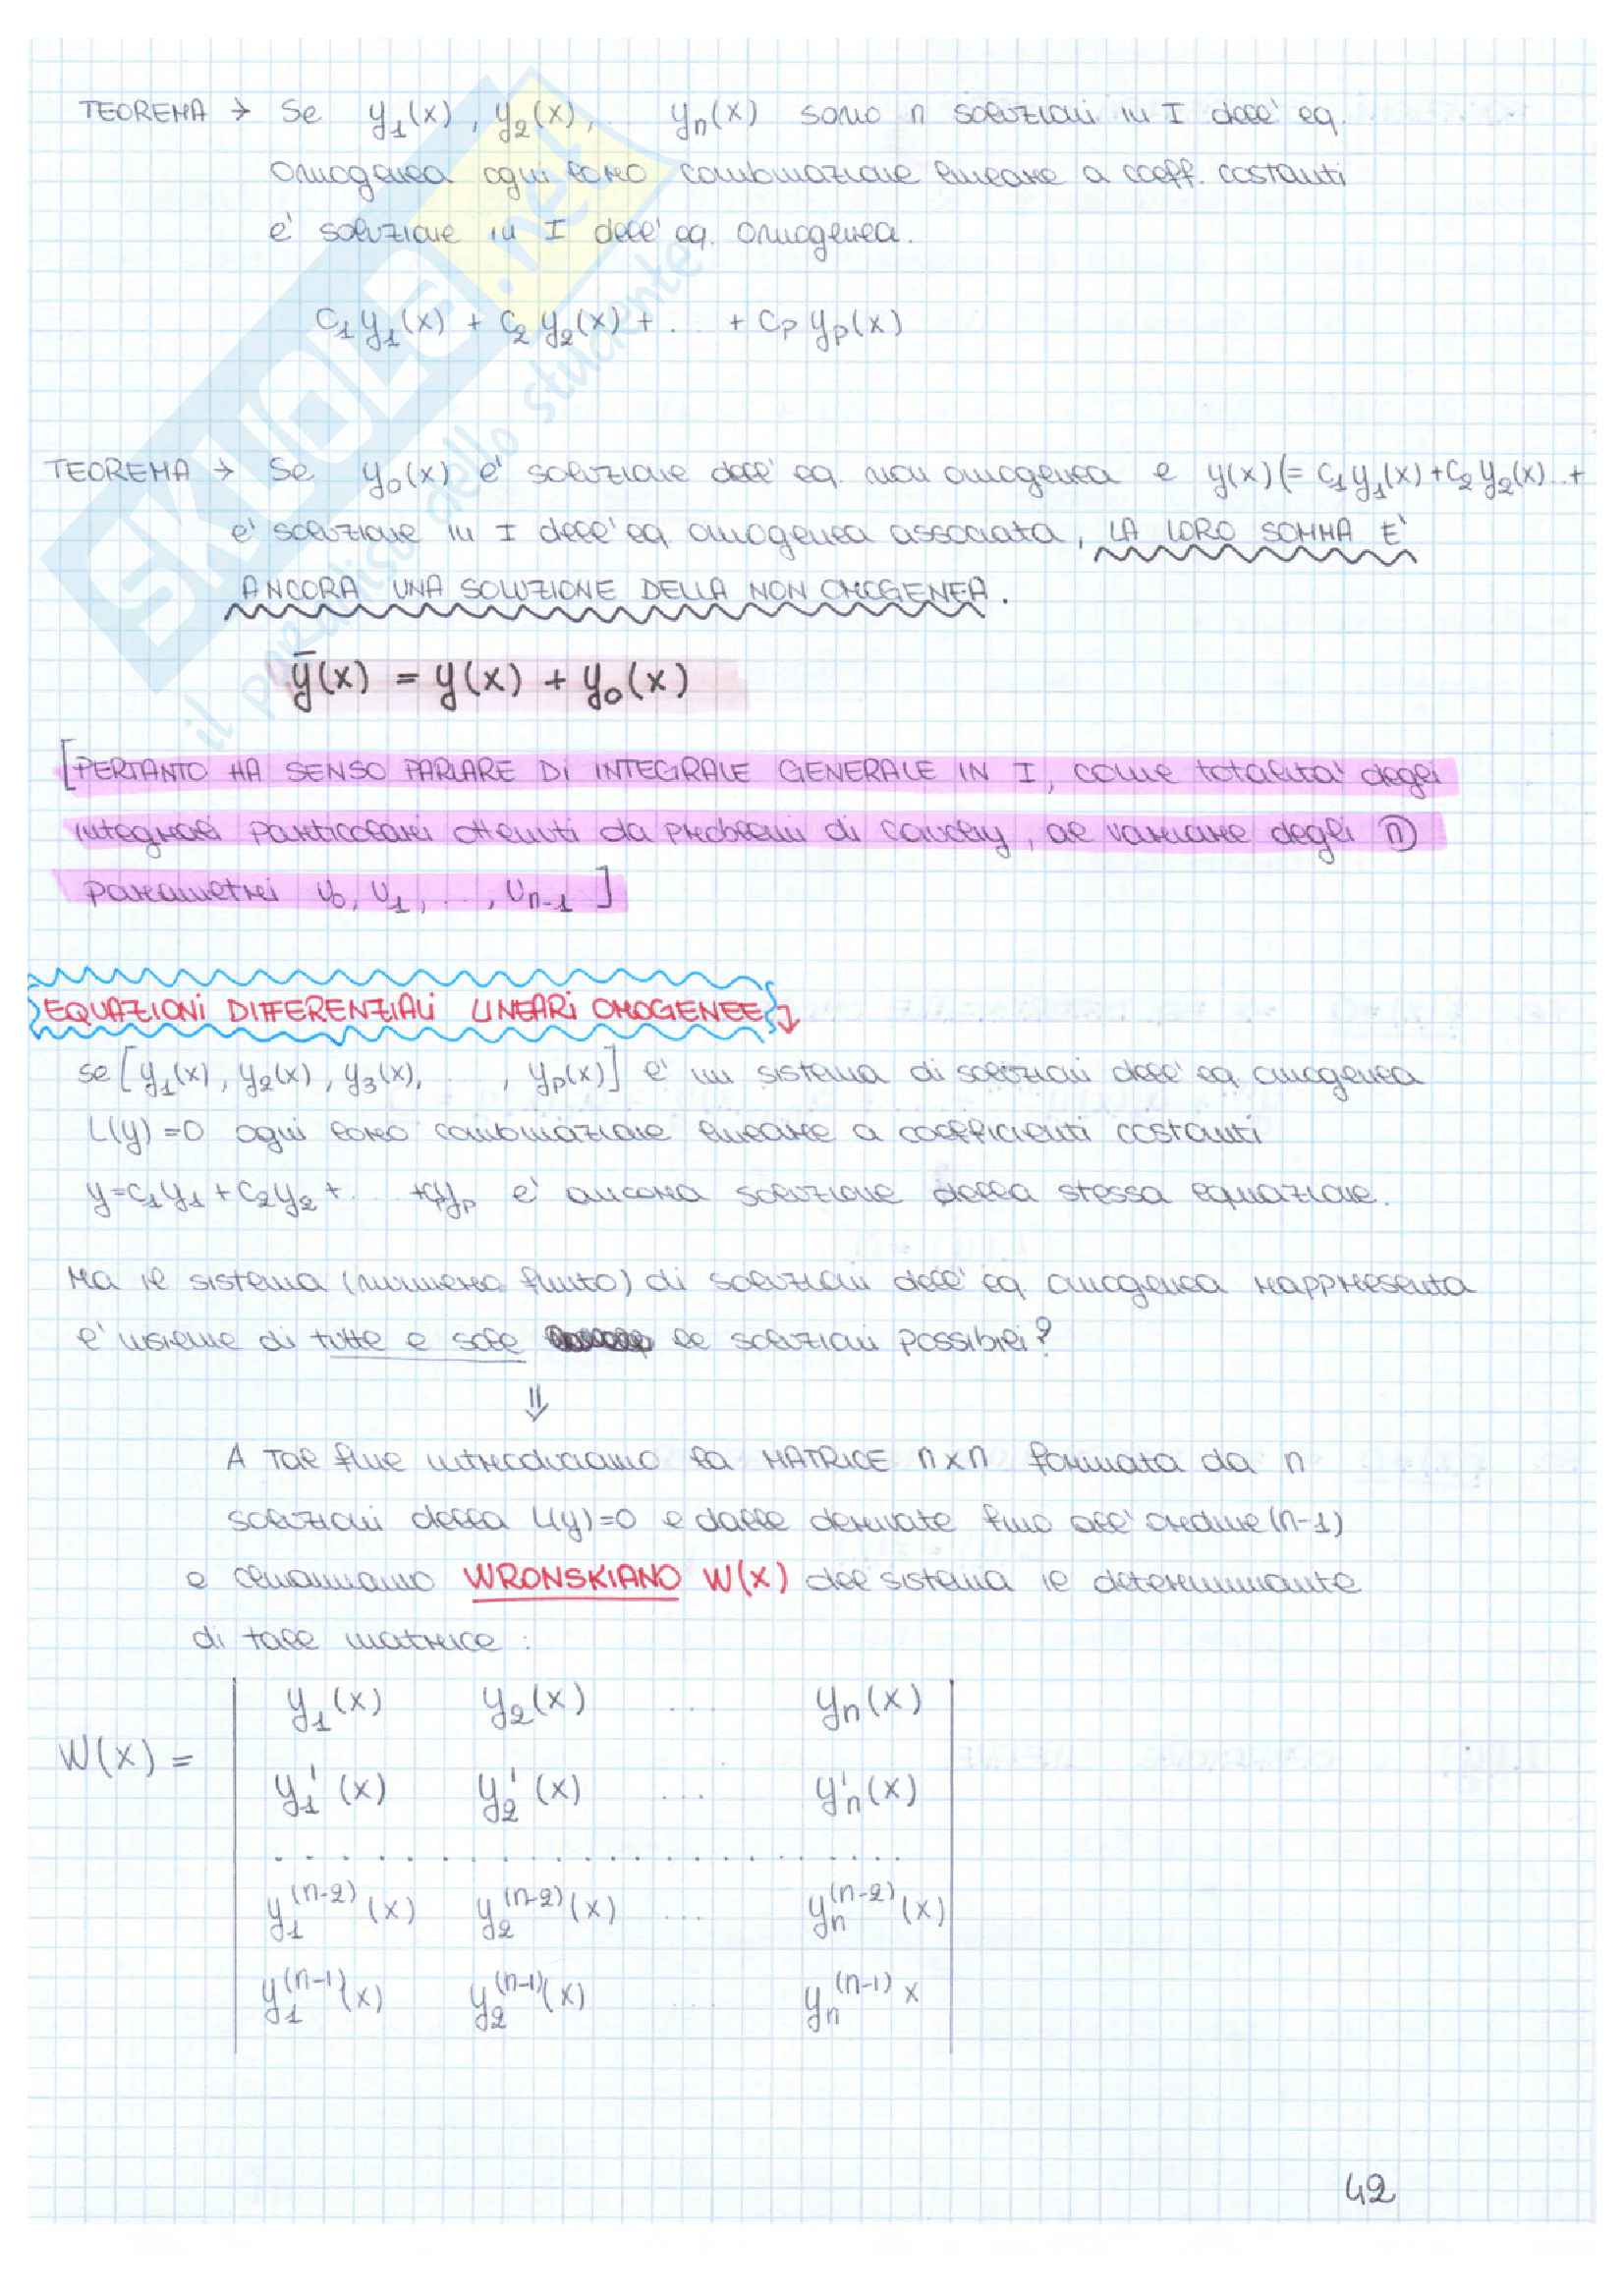 TEOREMA → Se y₁(x), y₂(x), .. yₙ(x) sono n soluzioni in I dell'eq.
omogenea ogni loro combinazione lineare a coeff. costanti
e' soluzione in I dell'eq. omogenea.
C₁y₁(x) + C₂y₂(x) + . .. + Cₚyₚ(x)
TEOREMA → Se y₀(x) e' soluzione dell'eq. non omogenea e y(x)(= C₁y₁(x)+C₂y₂(x)..+
e' soluzione in I dell'eq omogenea associata, LA LORO SOMMA E'
ANCORA UNA SOLUZIONE DELLA NON OMOGENEA.
ȳ(x) = y(x) + y₀(x)
[PERTANTO HA SENSO PARLARE DI INTEGRALE GENERALE IN I, come totalita' degli
integrali particolari ottenuti da problemi di Cauchy, al variare degli n
parametri υ₀, υ₁, . .. , υₙ₋₁ ]
EQUAZIONI DIFFERENZIALI LINEARI OMOGENEE
se [y₁(x), y₂(x), y₃(x), . .. , yₚ(x)] e' un sistema di soluzioni dell'eq. omogenea
L(y)=0 ogni loro combinazione lineare a coefficienti costanti
y=C₁y₁ + C₂y₂ + . .. +Cₚyₚ e' ancora soluzione della stessa equazione.
Ma il sistema (numero finito) di soluzioni dell'eq. omogenea rappresenta
l'insieme di tutte e sole le soluzioni possibili?
⇓
A Tal fine introduciamo la MATRICE n×n formata da n
soluzioni della L(y)=0 e dalle derivate fino all'ordine (n-1)
e chiamiamo WRONSKIANO W(x) del sistema il determinante
di tale matrice :
y₁(x) y₂(x) ... yₙ(x)
W(x) =
y₁'(x) y₂'(x) ... yₙ'(x)
. . . . . . . . . . . . . . . . . . . .
y₁⁽ⁿ⁻²⁾(x) y₂⁽ⁿ⁻²⁾(x) ... yₙ⁽ⁿ⁻²⁾(x)
y₁⁽ⁿ⁻¹⁾(x) y₂⁽ⁿ⁻¹⁾(x) ... yₙ⁽ⁿ⁻¹⁾x
42
SKUOLA.net
il paradiso dello studente